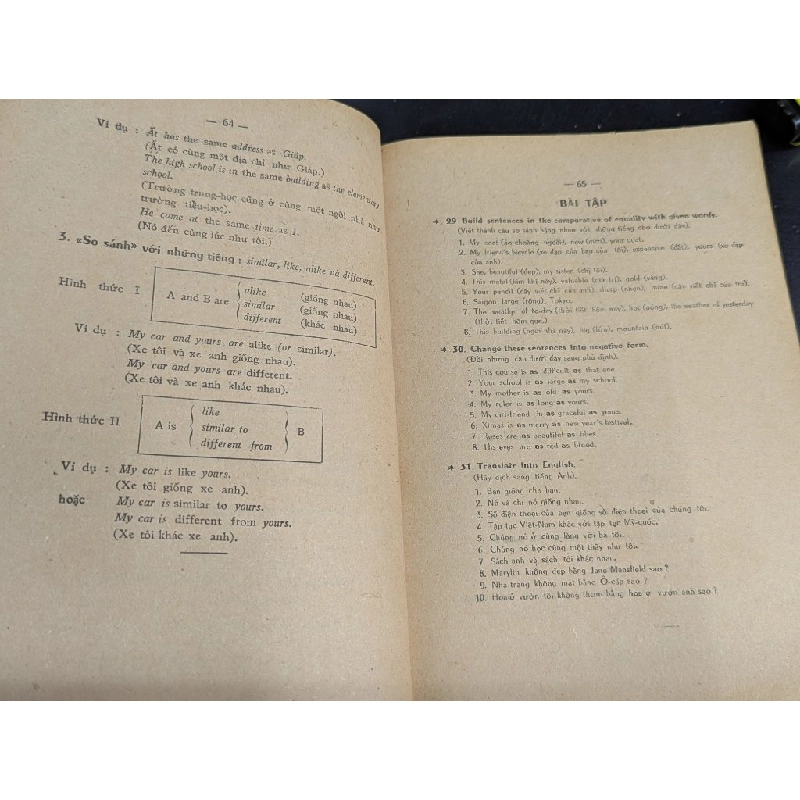 — 64 —
Ví dụ : Ất has the same address as Giáp.
(Ất có cùng một địa chỉ như Giáp.)
The high school is in the same building as our elementary
school.
(Trường trung-học cũng ở cùng một ngôi nhà như
trường tiểu-học).
He came at the same time as I.
(Nó đến cùng lúc như tôi.)
3. «So sánh» với những tiếng : similar, like, alike và different.
Hình thức I
A and B are
alike (giống nhau)
similar (giống nhau)
different (khác nhau)
Ví dụ : My car and yours are alike (or similar).
(Xe tôi và xe anh giống nhau).
My car and yours are different.
(Xe tôi và xe anh khác nhau).
Hình thức II
A is
like
similar to
different from
B
Ví dụ : My car is like yours.
(Xe tôi giống xe anh).
hoặc My car is similar to yours.
My car is different from yours.
(Xe tôi khác xe anh).
— 65 —
BÀI TẬP
29. Build sentences in the comparative of equality with given words.
(Viết thành câu so sánh bằng nhau với những tiếng cho dưới đây).
1. My coat (áo choàng ngoài), new (mới), your
2. My friend's bicycle (xe đạp của bạn của tôi), expensive (đắt), yours (xe đạp
của anh).
3. Sue, beautiful (đẹp), my sister (chị tôi).
4. This metal (kim khí này), valuable (có giá), gold (vàng).
5. Your pencil (cây viết chì của anh), sharp (nhọn), mine (cây viết chì của tôi).
6. Saigon, large (rộng), Tokyo.
7. The weather of today (thời tiết hôm nay), hot (nóng), the weather of yesterday
(thời tiết hôm qua).
8. This building (ngôi nhà này), big (lớn), mountain (núi).
30. Change these sentences into negative form.
(Đổi những câu dưới đây sang phủ định).
1. This course is as difficult as that one
2. Your school is as large as my school.
3. My mother is as old as yours.
4. My ruler is as long as yours.
5. My girlfriend is as graceful as yours.
6. Xmas is as merry as new year's festival.
7. Roses are as beautiful as lilies.
8. His eyes are as red as blood.
31. Translate into English.
(Hãy dịch sang tiếng Anh).
1. Bạn giống cha bạn.
2. Nó và chị nó giống nhau.
3. Số điện thoại của bạn giống số điện thoại của chúng tôi.
4. Tập tục Việt-Nam khác với tập tục Mỹ-quốc.
5. Chúng nó ở cùng làng với ba tôi.
6. Chúng nó học cùng một thầy như tôi.
7. Sách anh và sách tôi khác nhau.
8. Marylin không đẹp bằng Jane Mansfield sao ?
9. Nha trang không mát bằng Ô-cấp sao ?
10. Hoa ở vườn tôi không thơm bằng hoa ở vườn anh sao ?